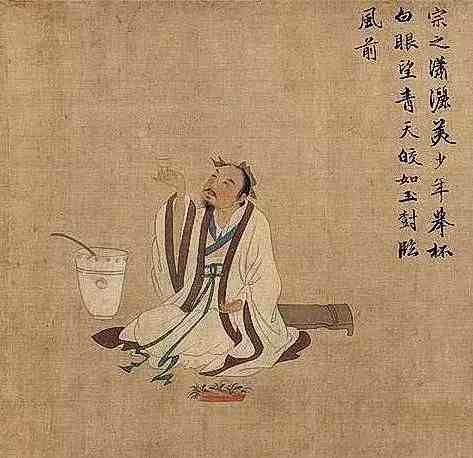 宗之瀟灑美少年舉杯
白眼望青天皎如玉樹臨
風前